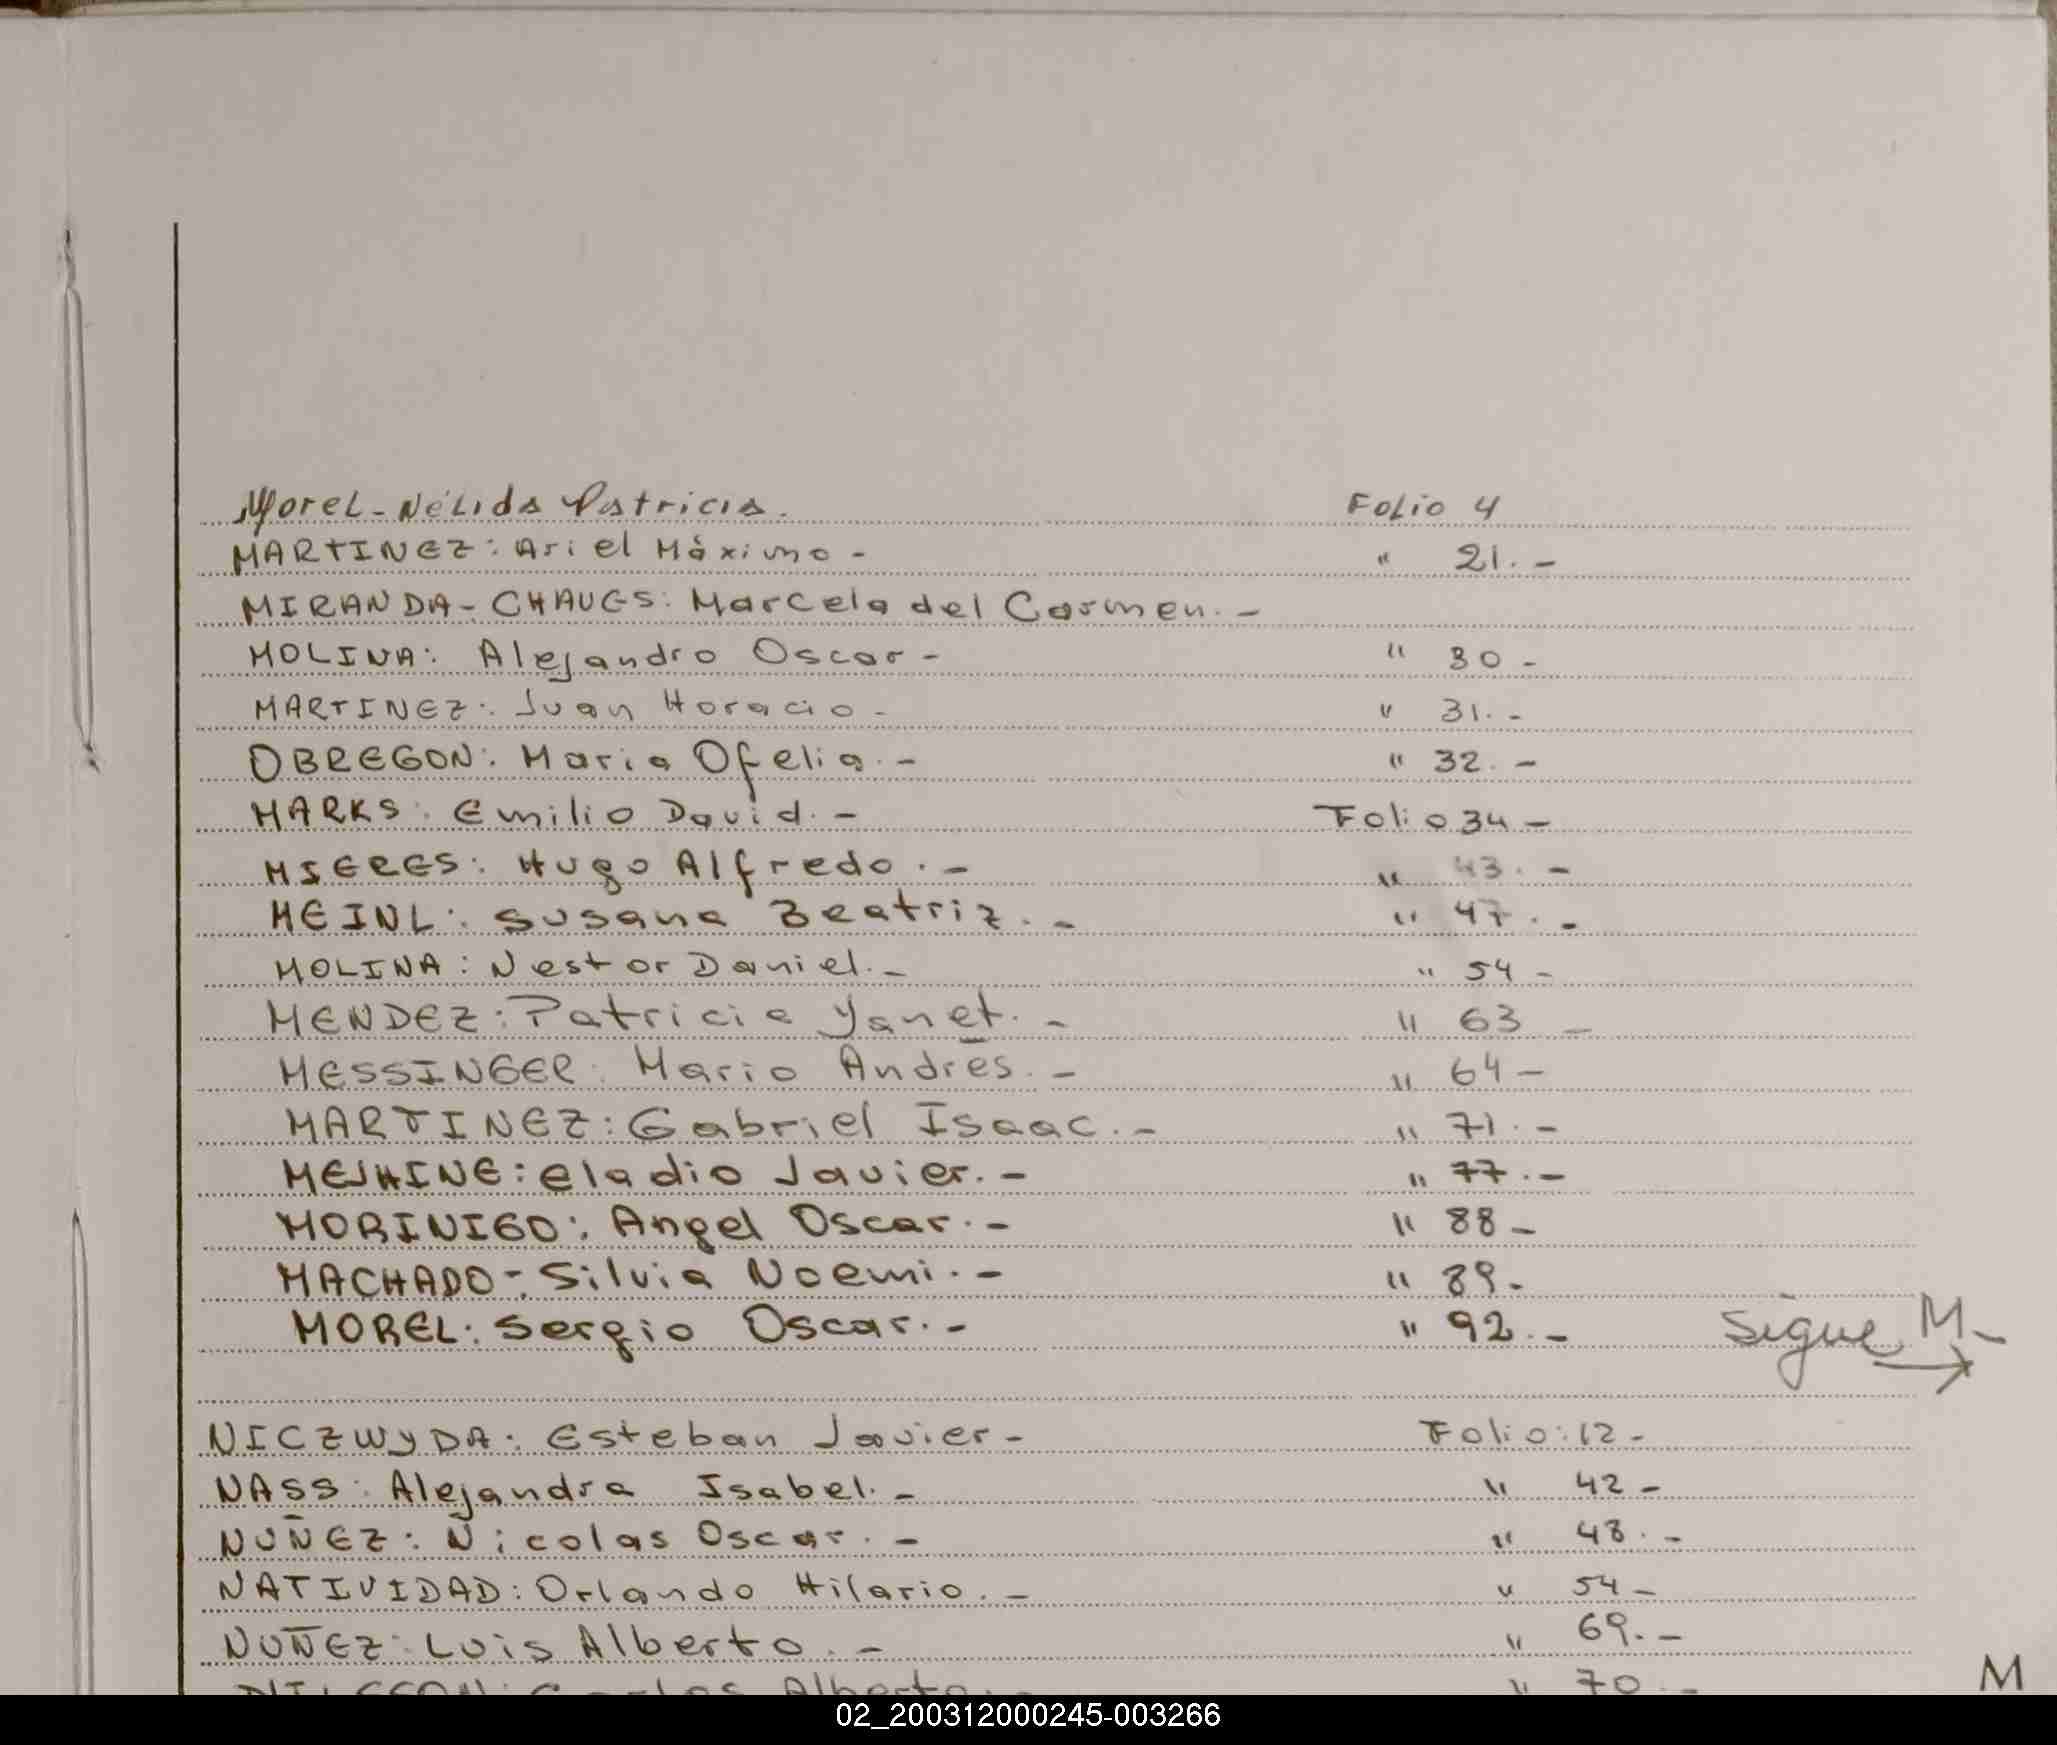 Morel - Nélida Patricia. Folio 4
MARTINEZ: Ariel Máximo - " 21. -
MIRANDA - CHAVES: Marcela del Carmen. -
MOLINA: Alejandro Oscar - " 30 -
MARTINEZ: Juan Horacio - " 31. -
OBREGON: Maria Ofelia. - " 32. -
MARKS: Emilio David. - Folio 34 -
MIERES: Hugo Alfredo. - " 43. -
MEINL: Susana Beatriz. - " 47. -
MOLINA: Nestor Daniel. - " 54 -
MENDEZ: Patricia Yanet. - " 63 -
MESSINGER: Mario Andrés. - " 64 -
MARTINEZ: Gabriel Isaac. - " 71. -
eladio Javier. - " 77. -
MORINIGO: Angel Oscar. - " 88 -
MACHADO: Silvia Noemi. - " 89 -
MOREL: Sergio Oscar. - " 92. - Sigue M -
NICZWYDA: Esteban Javier - Folio: 12 -
NASS: Alejandra Isabel. - " 42 -
NUÑEZ: Nicolas Oscar. - " 48. -
NATIVIDAD: Orlando Hilario. - " 54 -
NUÑEZ: Luis Alberto. - " 69. -
Alberto. - " 70. -
M
02_200312000245-003266